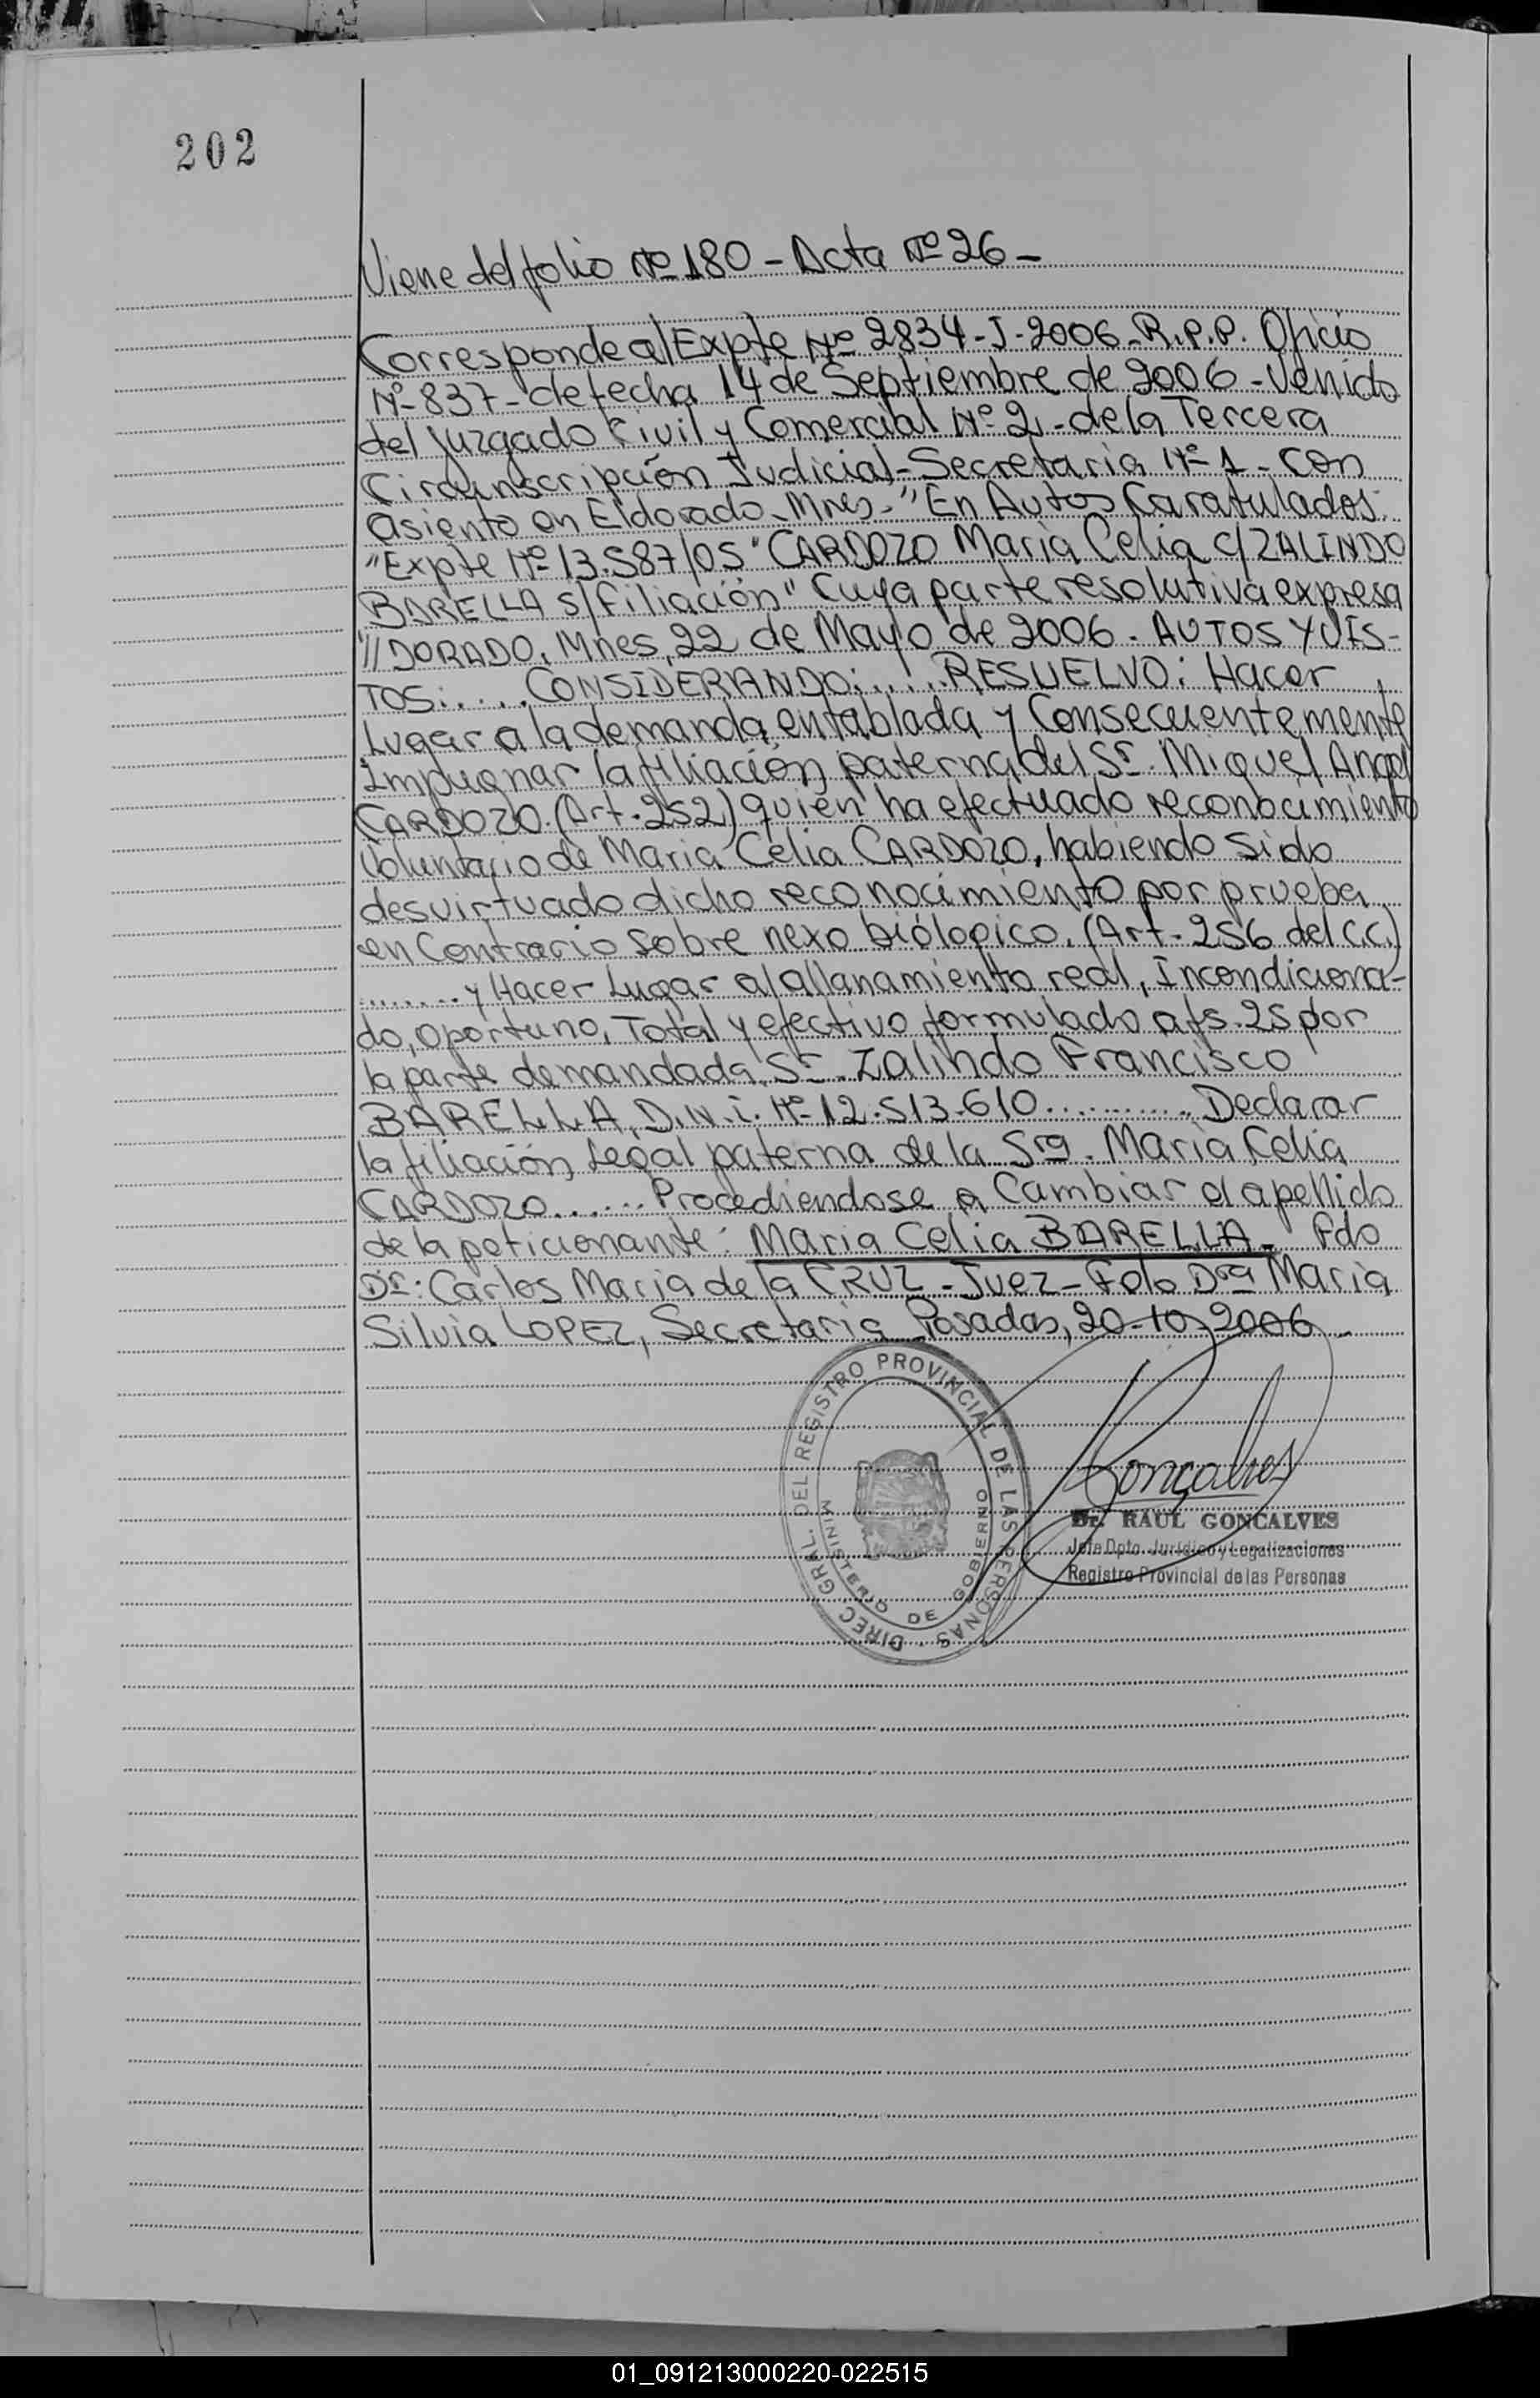 202
Viene del folio Nº 180 - Acta Nº 26 -
Corresponde al Expte Nº 2834-J-2006-R.P.P. Oficio
Nº 837- de fecha 14 de Septiembre de 2006 - Venido
del Juzgado Civil y Comercial Nº 2 - de la Tercera
Circunscripción Judicial - Secretaria Nº 1 - Con
asiento en Eldorado - Mnes - "En Autos Caratulados:
"Expte Nº 13.587/05 "CARDOZO Maria Celia c/ ZALINDO
BARELLA s/ filiación" Cuya parte resolutiva expresa
"// DORADO, Mnes, 22 de Mayo de 2006 - AUTOS Y VIS-
TOS:..... CONSIDERANDO:..... RESUELVO: Hacer
Lugar a la demanda entablada y Consecuentemente
Impugnar la filiación paterna del Sr. Miguel Angel
CARDOZO (Art. 252) quien ha efectuado reconocimiento
Voluntario de Maria Celia CARDOZO, habiendo sido
desvirtuado dicho reconocimiento por prueba
en Contrario sobre nexo biólogico. (Art. 256 del C.C.)
........ y Hacer Lugar al allanamiento real, Incondiciona-
do, oportuno, Total y efectivo formulado a fs. 25 por
la parte demandada Sr. Zalindo Francisco
BARELLA, D.N.i. Nº 12.513.610 ........... Declarar
la filiación Legal paterna de la Sra. Maria Celia
CARDOZO ...... Procediendose a Cambiar el apellido
de la peticionante: Maria Celia BARELLA - Fdo
Dr: Carlos Maria de la CRUZ - Juez - Fdo Dra Maria
Silvia LOPEZ, Secretaria Posadas, 20-10-2006 -
DIREC GRAL. DEL REGISTRO PROVINCIAL DE LAS PERSONAS
MINISTERIO DE GOBIERNO
Goncalves
Dr. RAUL GONCALVES
Jefe Dpto. Jurídico y Legalizaciones
Registro Provincial de las Personas
01_091213000220-022515